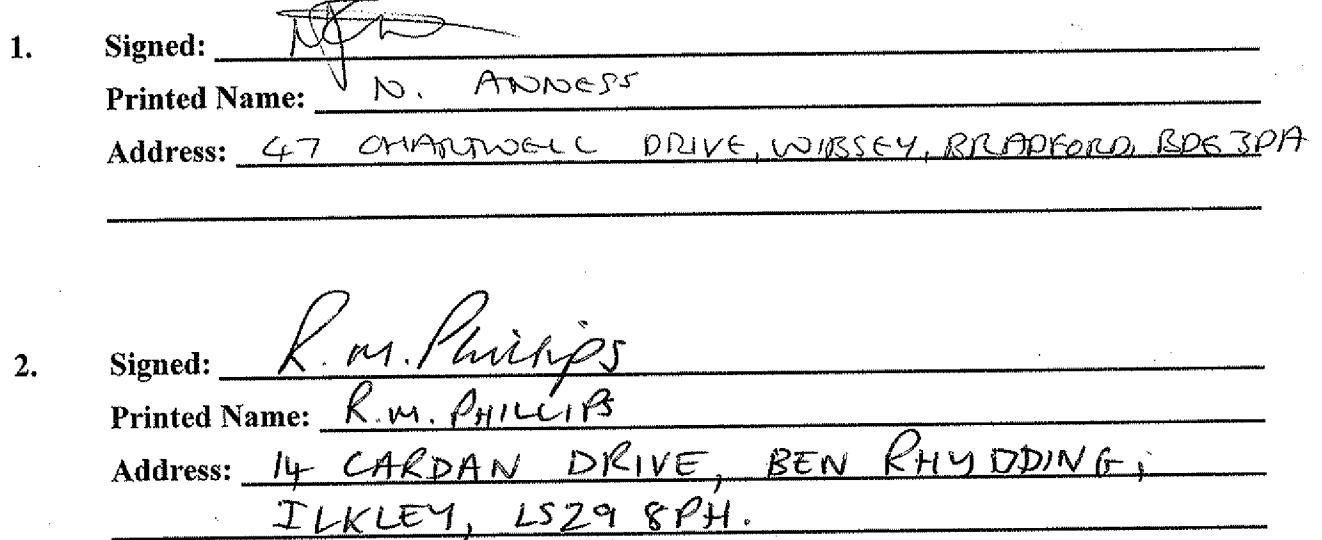 1. Signed:
Printed Name: N. ANNESS
Address: 47 CHARTWELL DRIVE, WIBSEY, BRADFORD, BD6 3PA
2. Signed: R.M. Phillips
Printed Name: R.M. PHILLIPS
Address: 14 CARDAN DRIVE, BEN RHYDDING,
ILKLEY, LS29 8PH.